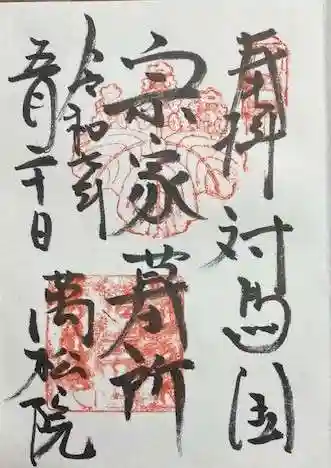 奉拝
対馬国
宗家墓所
令和六年
五月二十日
萬松院